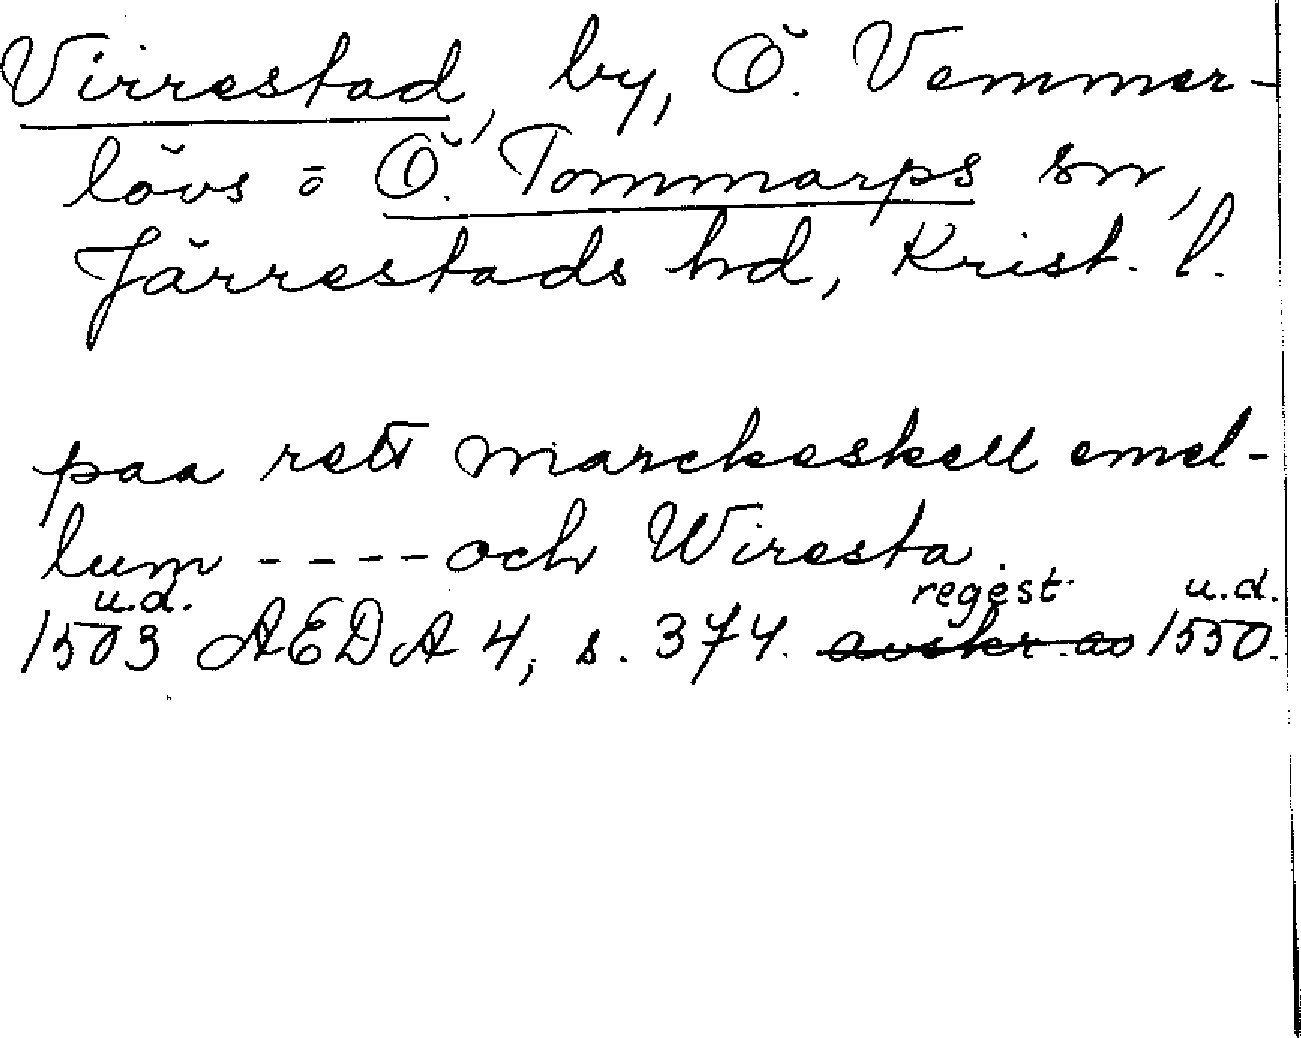 Virrestad, by, Ö. Vemmer-
lövs o Ö. Tommarps sn,
Järrestads hd, Krist. l.
paa rett marckeskell emel-
lum ---- och Wiresta.
u.d. regest u.d.
1503 AEDA 4, s. 374. avskr. av 1550.